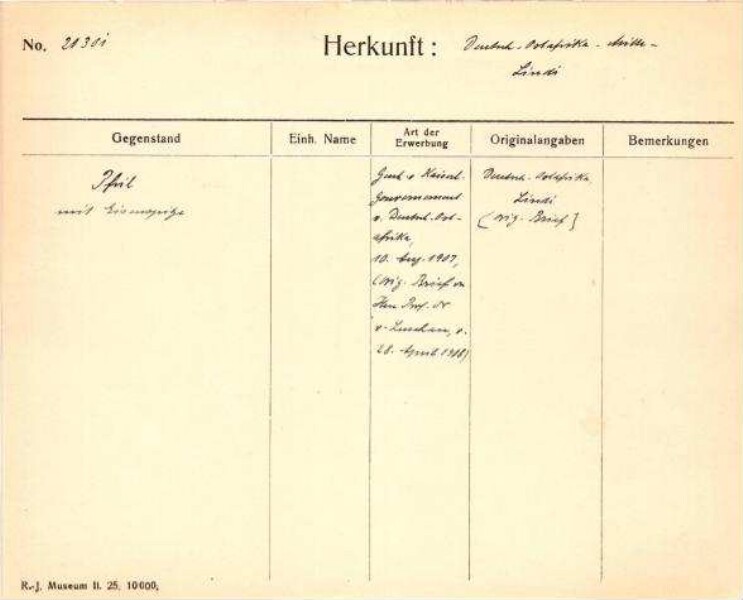 No. 2130i
Herkunft: Deutsch-Ostafrika -
Lindi
Gegenstand
Einh. Name
Art der
Erwerbung
Originalangaben
Bemerkungen
Pfeil
mit Eisenspitze
Gesch. v. Kaiserl.
Gouvernement
v. Deutsch-Ost-
afrika,
10. Aug. 1907,
(Orig. Brief v.
Herrn Prof. Dr
v. Luschan, v.
28. April 1908)
Deutsch-Ostafrika,
Lindi
(Orig. Brief)
R.-J. Museum II. 25. 10000,